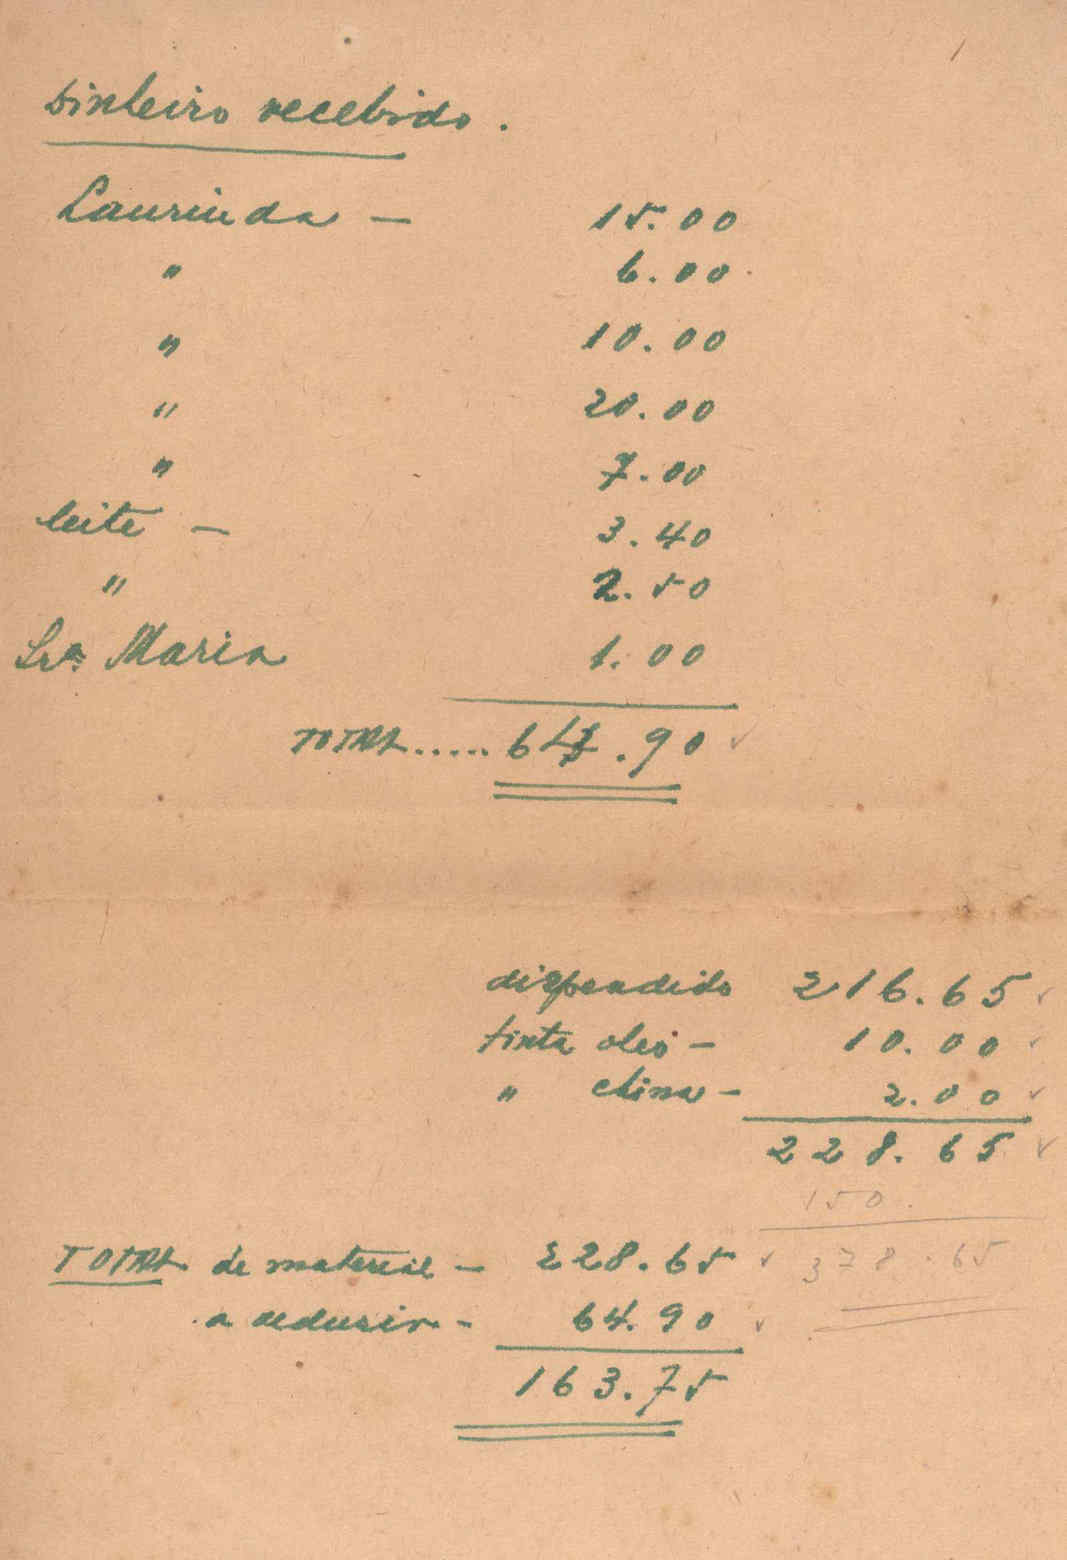 Dinheiro recebido.
Laurinda — 15.00
" 6.00
" 10.00
" 20.00
" 7.00
leite — 3.40
" 2.50
Sra. Maria 1.00
TOTAL ..... 64.90
dispendido 216.65
tinta oleo — 10.00
" china — 2.00
228.65
150.
TOTAL de material — 228.65 378.65
a redusir — 64.90
163.75